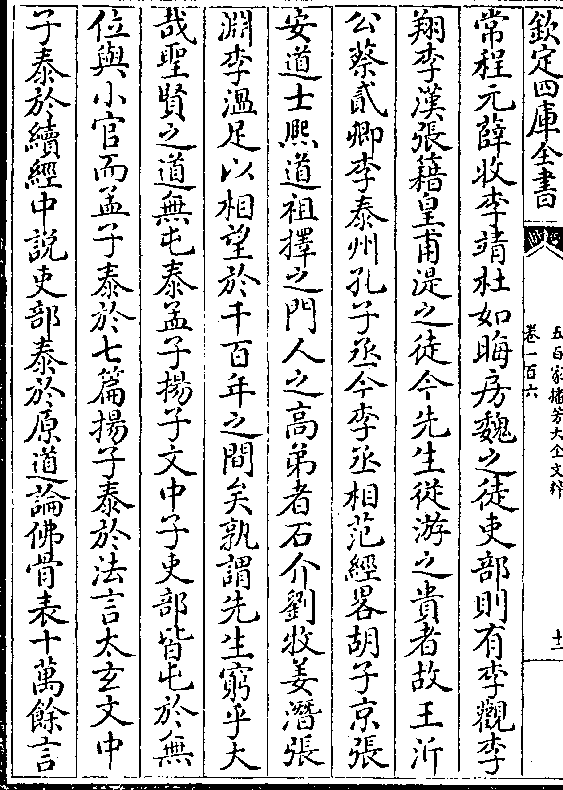 欽定四庫全書
五百家播芳大全文粹
卷一百六
十二
常程元薛收李靖杜如晦房魏之徒吏部則有李觀李
翔李漢張籍皇甫湜之徒今先生從游之貴者故王沂
公蔡貳卿李泰州孔子丞今李丞相范經畧胡子京張
安道士熙道祖擇之門人之高弟者石介劉牧姜潛張
淵李溫足以相望於千百年之間矣孰謂先生窮乎大
哉聖賢之道無屯泰孟子揚子文中子吏部皆屯於無
位與小官而孟子泰於七篇揚子泰於法言太玄文中
子泰於續經中説吏部泰於原道論佛骨表十萬餘言